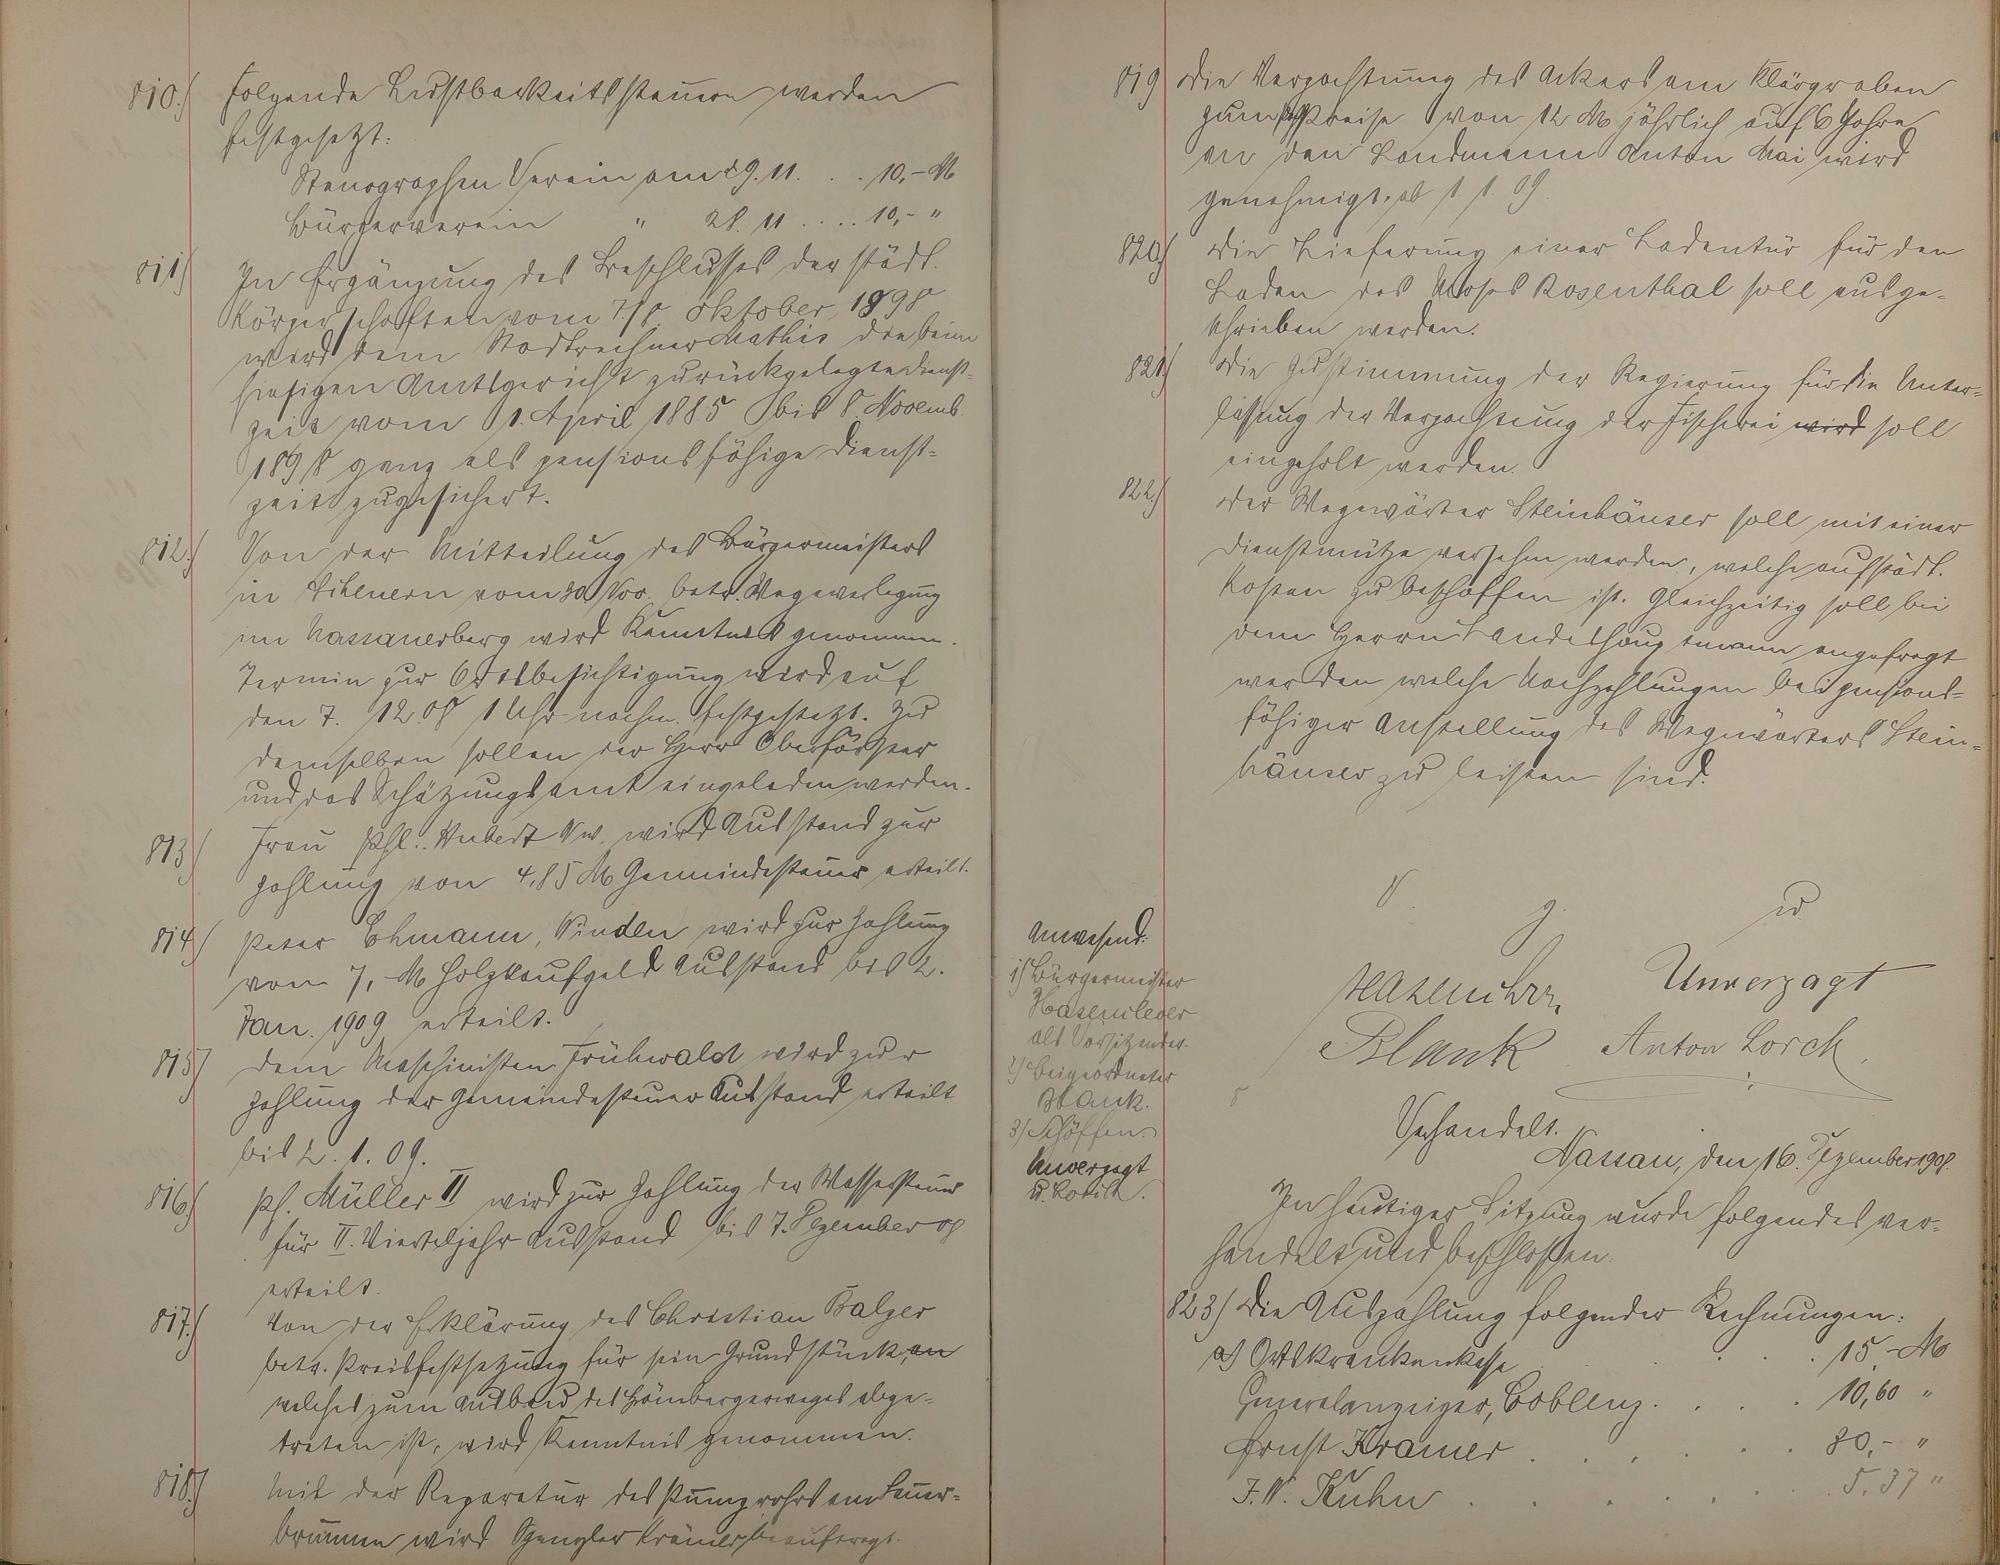 810.) Folgende Lustbarkeitssteuern werden
festgesetzt:
Stenographen Verein am 29.11. . . 10,- M
Bürgerverein " 28.11 . . . . 10,- "
811) In Ergänzung des Beschlusses der städt.
Körperschaften vom 7./8. Oktober 1898
wird dem Stadtrechner Mathis die beim
hiesigen Amtsgericht zurückgelegte Dienst-
zeit vom 1. April 1885 bis 8. Novemb.
1898 ganz als pensionsfähige Dienst-
zeit zugesichert.
812.) Von der Mitteilung des Bürgermeisters
in vom 30. Nov. betr. Wegeverlegung
im Nassauerberg wird Kenntnis genommen.
Termin zur Ortsbesichtigung wird auf
den 7. 12.08 1 Uhr nachm. festgesetzt. Zu
demselben sollen der Herr Oberförster
und das Schätzungsamt eingeladen werden.
813) Frau Phl. Hubert Ww. wird Ausstand zur
Zahlung von 4,85 M Gemeindesteuer erteilt.
814) Peter Ehmann, Winden wird zur Zahlung
von 7,- M Holzkaufgeld Ausstand bis 2.
Jan. 1909 erteilt.
815) Dem Maschinisten Frühwald wird zur
Zahlung der Gemeindesteuer Ausstand erteilt
bis 2.1.09.
816) Ph. Müller II wird zur Zahlung der Wassersteuer
für II. Vierteljahr Ausstand bis 7. Dezember 08
erteilt.
817.) Von der Erklärung des Christian Balzer
betr. Preisfestsetzung für sein Grundstück, an
welches zum Ausbau des Hömbergerweges abge-
treten ist, wird Kenntnis genommen.
818.) Mit der Reparatur des Pumprohrs am Lauer-
brunnen wird Spengler Krämer beauftragt.
819 Die Verpachtung des Ackers am Klärgraben
zum Preise von 12 M jährlich auf 6 Jahre
an den Landmann Anton Mai wird
genehmigt, ab 1.1.09.
820) Die Lieferung einer Ladentür für den
Laden des Moses Rosenthal soll ausge-
schrieben werden.
821) Die Zustimmung der Regierung für die Unter-
lassung der Verpachtung der Fischerei wird soll
eingeholt werden.
822.) Der Wegewärter Steinhäuser soll mit einer
Dienstmütze versehen werden, welche auf städt.
Kosten zu beschaffen ist. Gleichzeitig soll bei
dem Herrn Landeshauptmann angefragt
werden welche Nachzahlungen bei pensions-
fähiger Anstellung des Wegewärters Stein-
häuser zu leisten sind.
V. g. u.
Hasenclever, Unverzagt
Blank Anton Lorch
Anwesend:
1) Bürgermeister
Hasenclever
als Vorsitzender.
2) Beigeordneter
Blank.
3) Schöffen:
Unverzagt
u. Lorch.
Verhandelt.
Nassau, den 16. Dezember 1908.
In heutiger Sitzung wurde folgendes ver-
handelt und beschlossen.
823) Die Auszahlung folgender Rechnungen:
a) Ortskrankenkasse . . . 15,- M
Generalanzeiger, Coblenz . . . . 10,60 "
Ernst Kramer . . . . . . 80,- "
J. W. Kuhn . . . . . . . 5,37 "